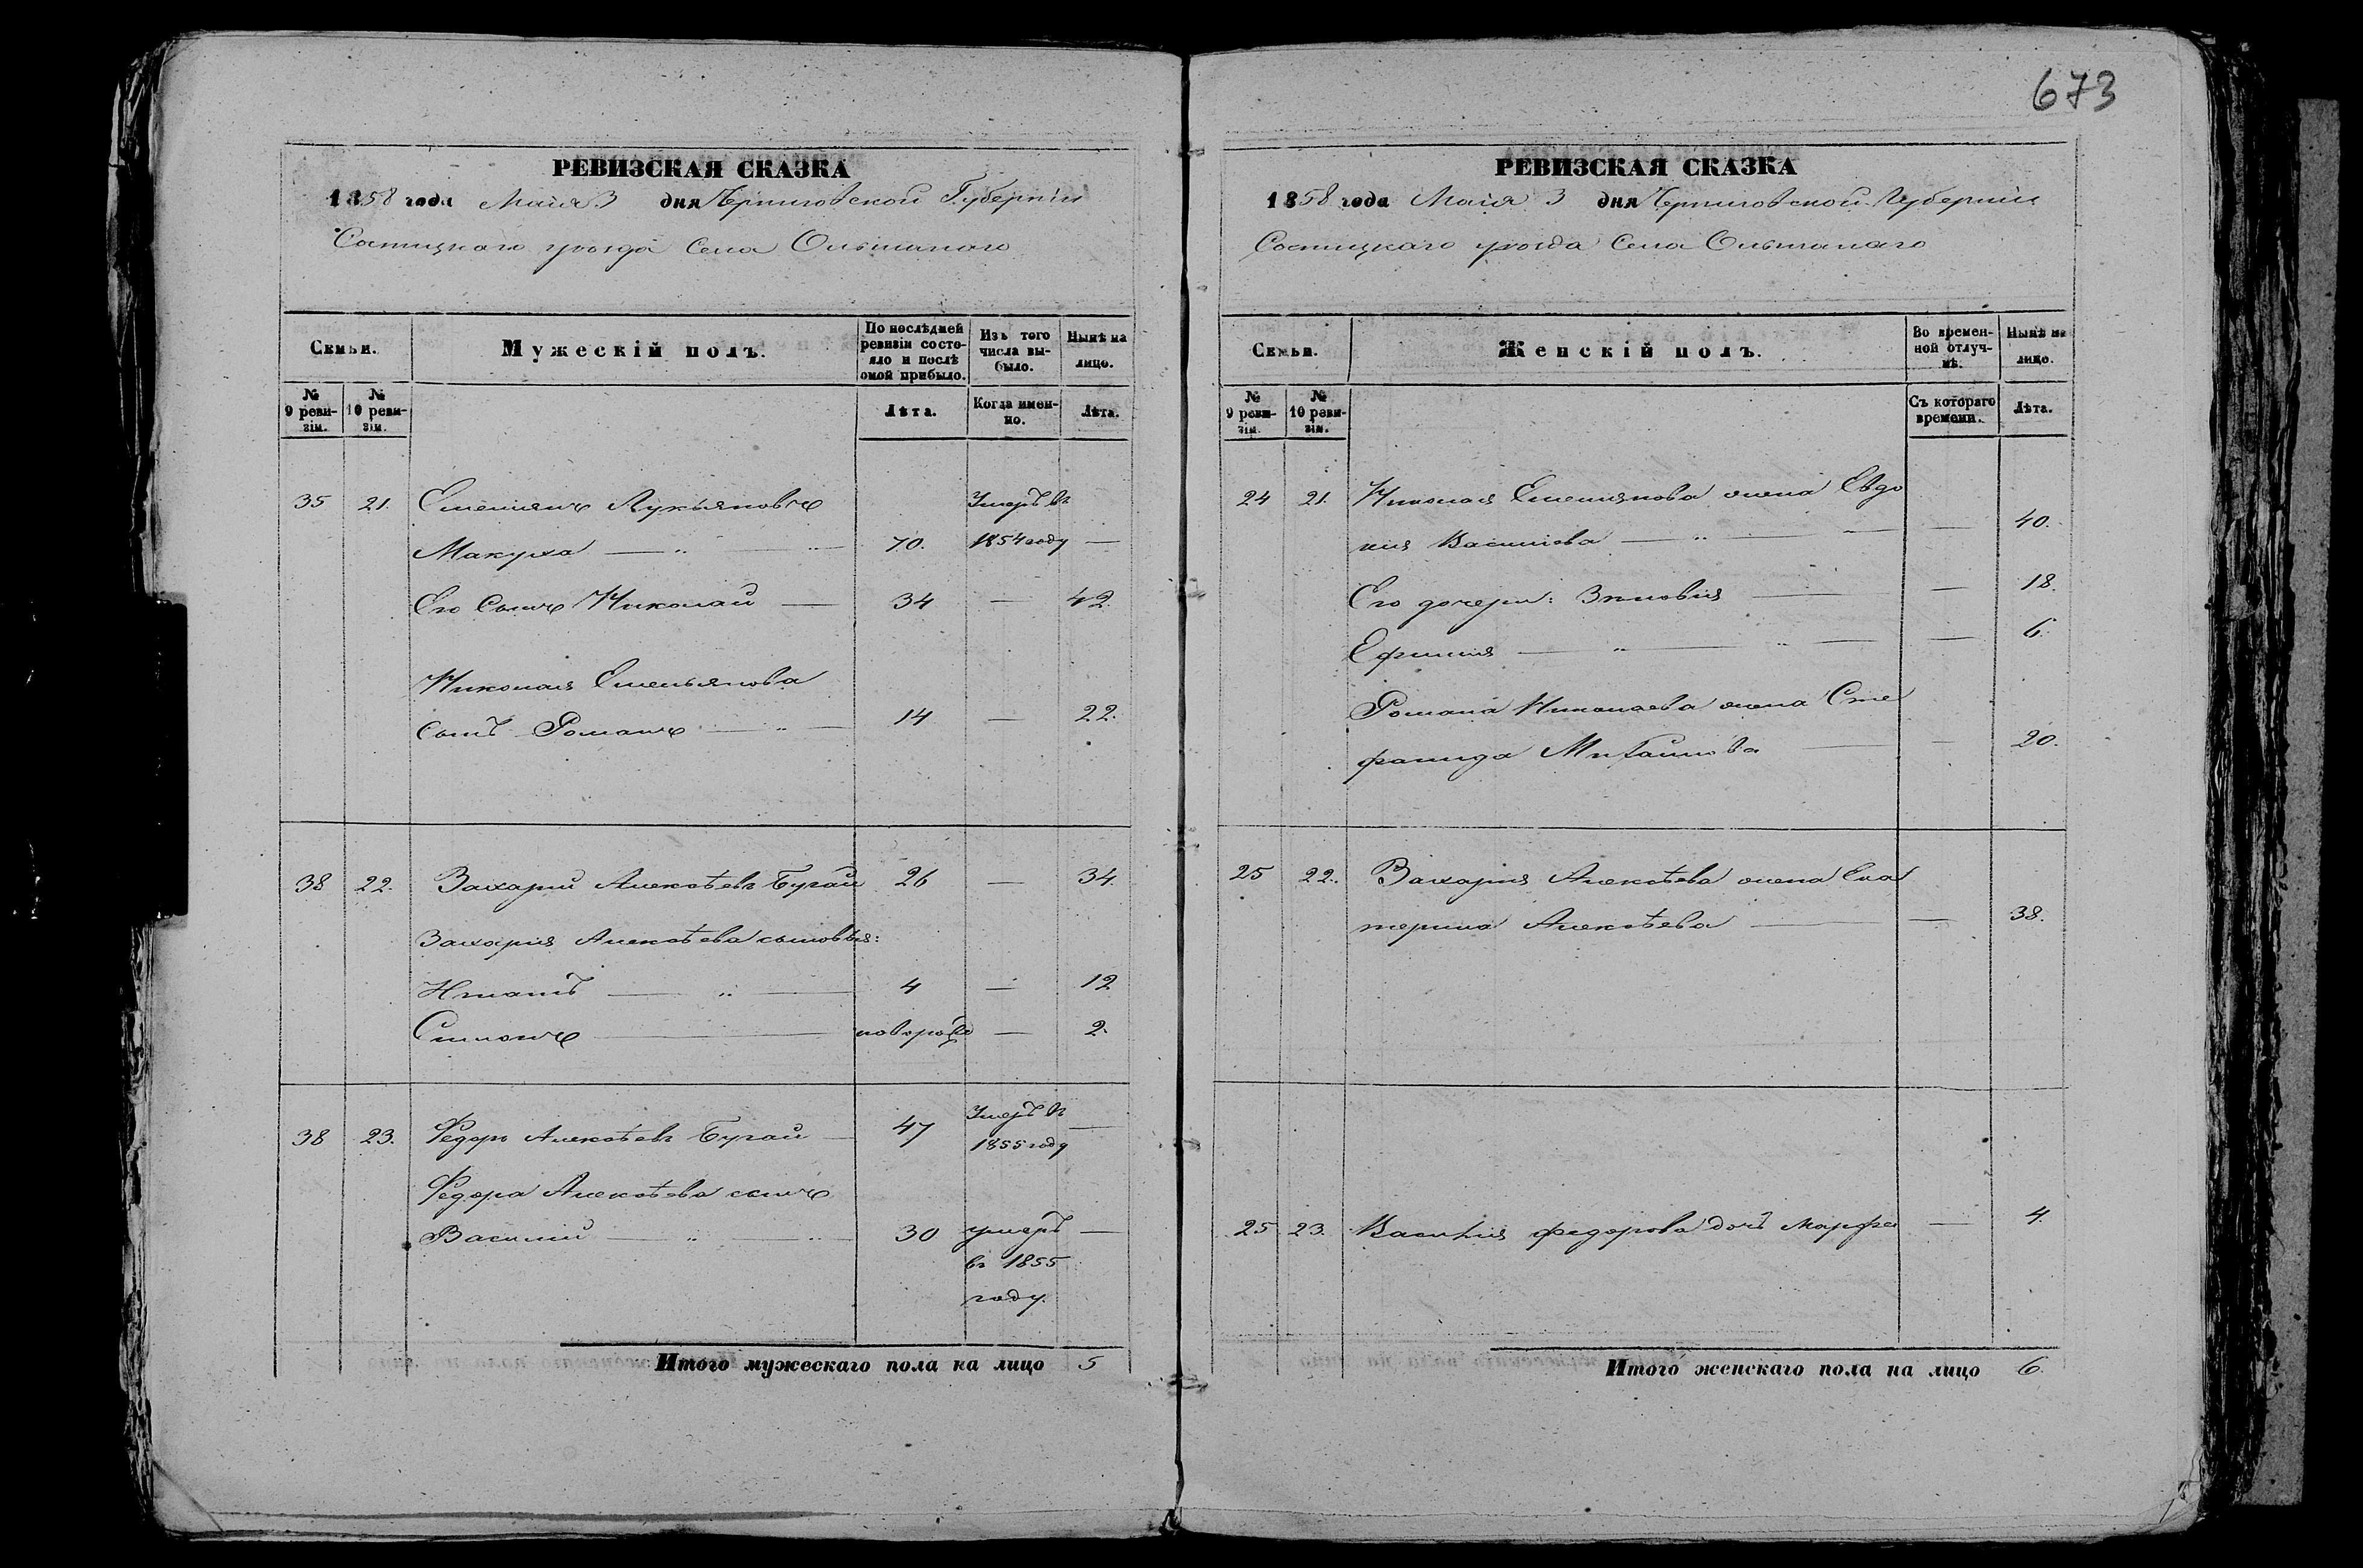 673
РЕВИЗСКАЯ СКАЗКА
1858 года Маія 3 дня Черниговской Губерніи
Сосницкаго уѣзда Села Ольшанаго
Семьи.
Мужескій полъ.
По послѣдней ревизіи состояло и послѣ оной прибыло.
Изъ того числа выбыло.
Нынѣ на лицо.
№ 9 ревизіи.
№ 10 ревизіи.
Лѣта.
Когда именно.
Лѣта.
35 21. Емельянъ Лукьяновъ Умеръ въ
Макуха — „ — 70. 1854 году —
Его Сынъ Николай — 34 — 42.
Николая Емельянова
сынъ Романъ — „ — 14 — 22.
38 22. Захарій Алексѣевъ Бугай 26 — 34.
Захарія Алексѣева сыновья:
Игнатъ — „ — 4 — 12
Симонъ — новорожд — 2.
38 23. Федоръ Алексѣевъ Бугай — 47 Умеръ въ 1855 году —
Федора Алексѣева сынъ
Василій — „ — „ 30 умеръ —
въ 1855
году.
Итого мужескаго пола на лицо 5
РЕВИЗСКАЯ СКАЗКА
1858 года Маія 3 дня Черниговской Губерніи
Сосницкаго уѣзда Села Ольшанаго
Семьи.
Женскій полъ.
Во временной отлучкѣ.
Нынѣ на лицо.
№ 9 ревизіи.
№ 10 ревизіи.
Съ котораго времени.
Лѣта.
24 21. Николая Емельянова жена Евдо
кия Василіева — „ — — 40.
Его дочери: Зиновія — — 18.
Ефимія — „ — „ — — 6.
Романа Николаева жена Сте
фанида Михайлова — — 20.
25 22. Захарія Алексѣева жена Ека
терина Алексѣева — — 38.
25 23. Василія Федорова дочь Марфа — 4.
Итого женскаго пола на лицо 6.